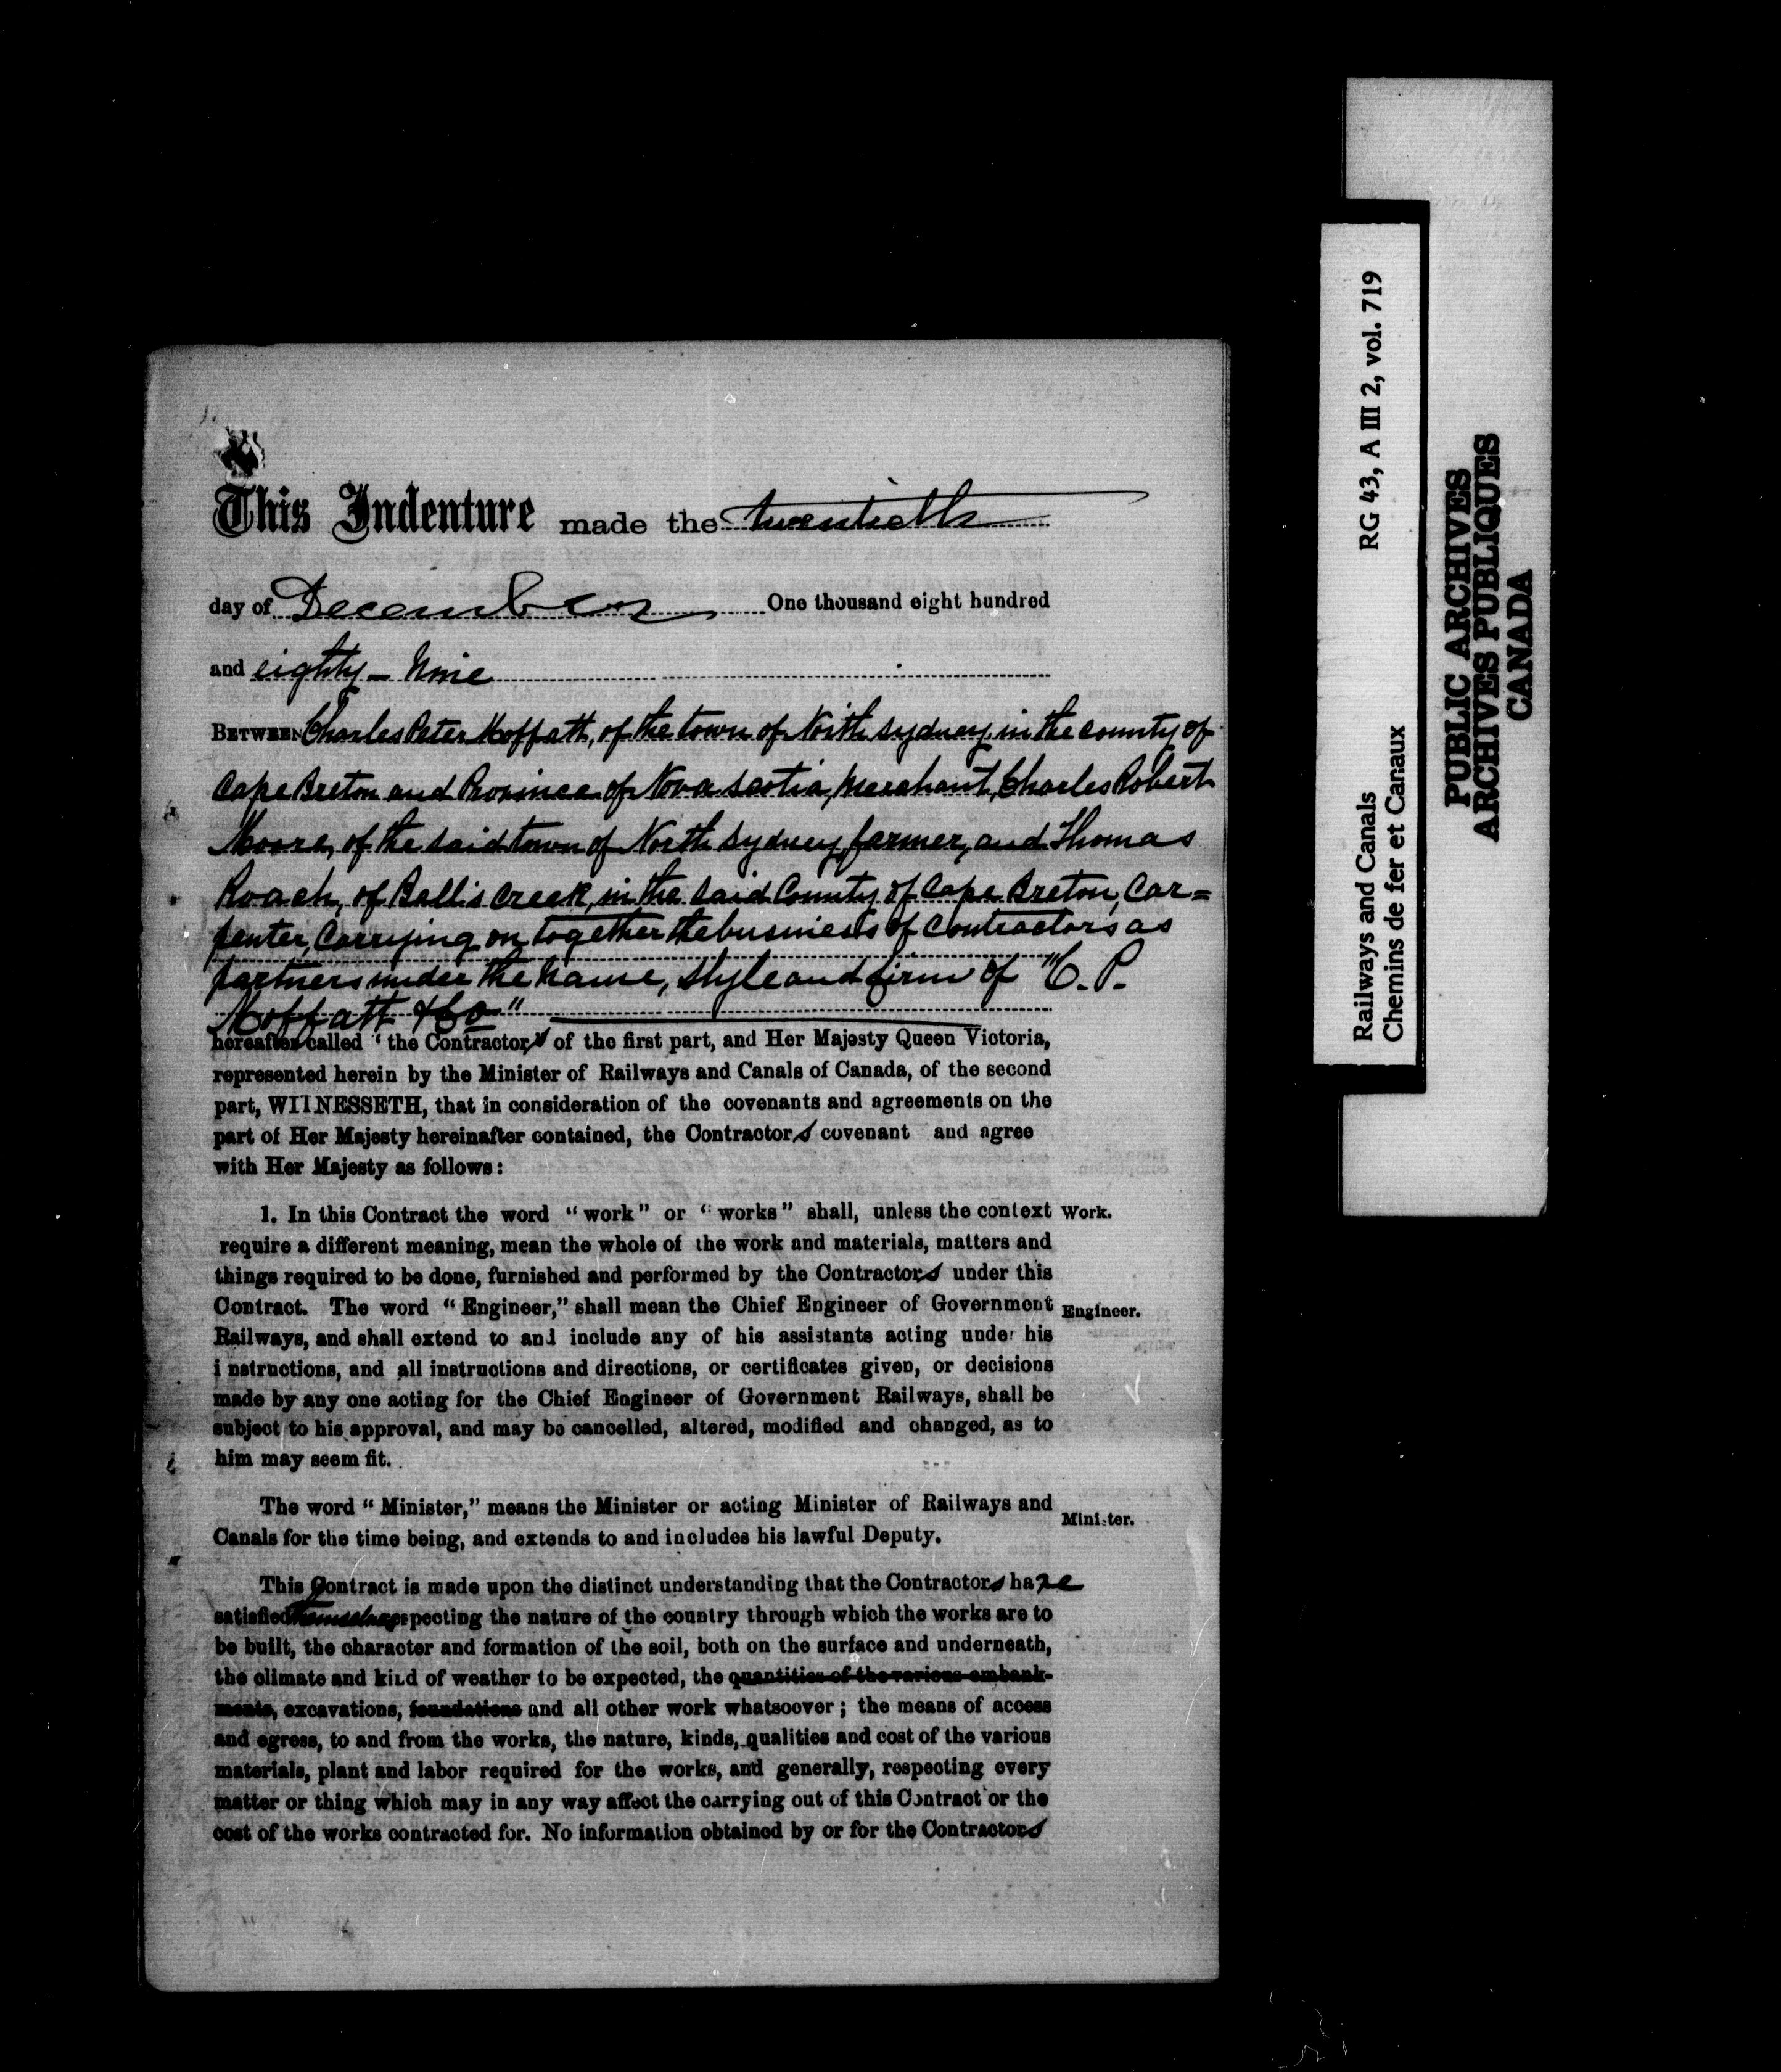 This Indenture made the twentieth
day of December One thousand eight hundred
and eighty-Nine
BETWEEN Charles Peter Moffatt, of the town of North Sydney, in the county of
Cape Breton and Province of Nova Scotia, Merchant, Charles Robert
Moore, of the said town of North Sydney, farmer, and Thomas
Roach, of Ball's Creek, in the said County of Cape Breton, Car=
penter, Carrying on together the business of Contractors as
partners under the name, style and firm of "C. P.
Moffatt & Co"
hereafter called "the Contractors of the first part, and Her Majesty Queen Victoria,
represented herein by the Minister of Railways and Canals of Canada, of the second
part, WITNESSETH, that in consideration of the covenants and agreements on the
part of Her Majesty hereinafter contained, the Contractors covenant and agree
with Her Majesty as follows:
1. In this Contract the word "work" or "works" shall, unless the context Work.
require a different meaning, mean the whole of the work and materials, matters and
things required to be done, furnished and performed by the Contractors under this
Contract. The word "Engineer," shall mean the Chief Engineer of Government Engineer.
Railways, and shall extend to and include any of his assistants acting under his
instructions, and all instructions and directions, or certificates given, or decisions
made by any one acting for the Chief Engineer of Government Railways, shall be
subject to his approval, and may be cancelled, altered, modified and changed, as to
him may seem fit.
The word "Minister," means the Minister or acting Minister of Railways and Minister.
Canals for the time being, and extends to and includes his lawful Deputy.
This Contract is made upon the distinct understanding that the Contractors have
satisfied themselves respecting the nature of the country through which the works are to
be built, the character and formation of the soil, both on the surface and underneath,
the climate and kind of weather to be expected, the quantities of the various embank-
ments, excavations, foundations and all other work whatsoever; the means of access
and egress, to and from the works, the nature, kinds, qualities and cost of the various
materials, plant and labor required for the works, and generally, respecting every
matter or thing which may in any way affect the carrying out of this Contract or the
cost of the works contracted for. No information obtained by or for the Contractors
Railways and Canals RG 43, A III 2, vol. 719
Chemins de fer et Canaux
PUBLIC ARCHIVES
ARCHIVES PUBLIQUES
CANADA